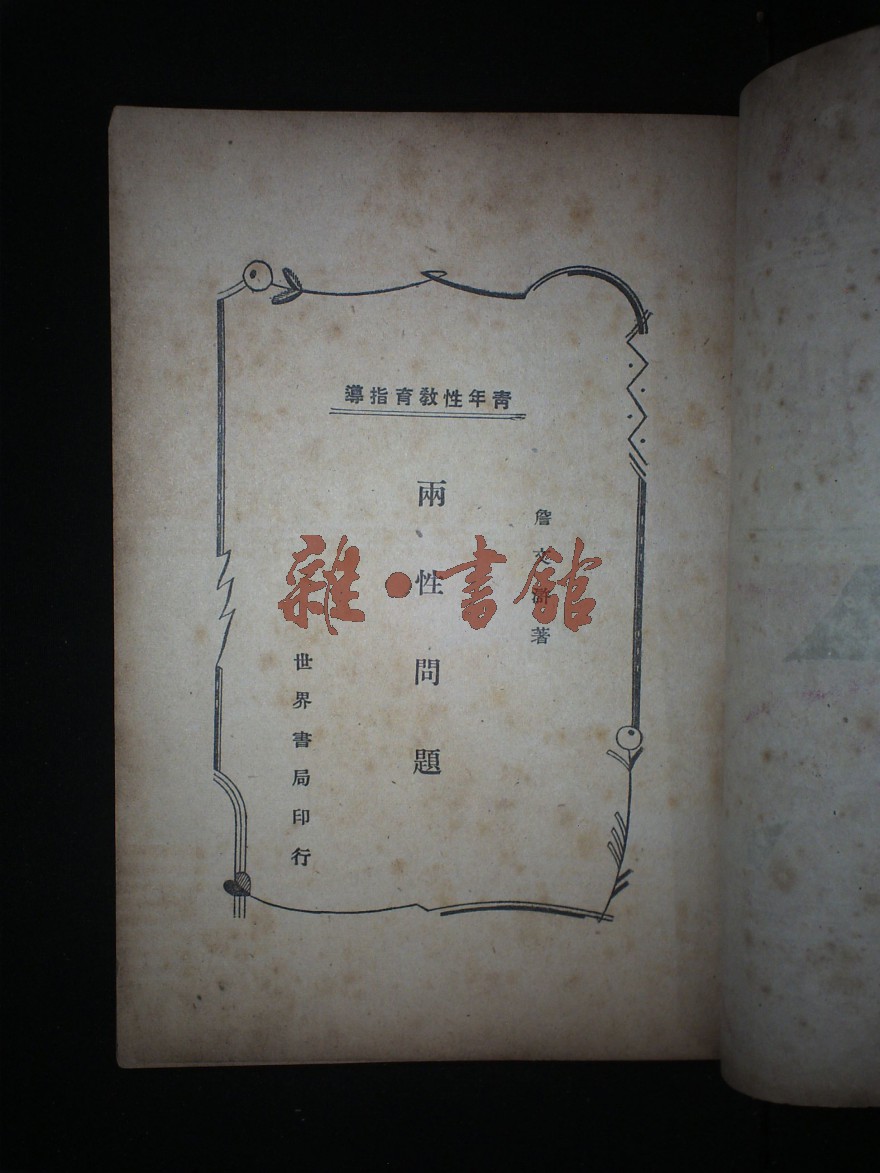 青年性敎育指導
詹文滸著
兩性問題
世界書局印行
雜·書館